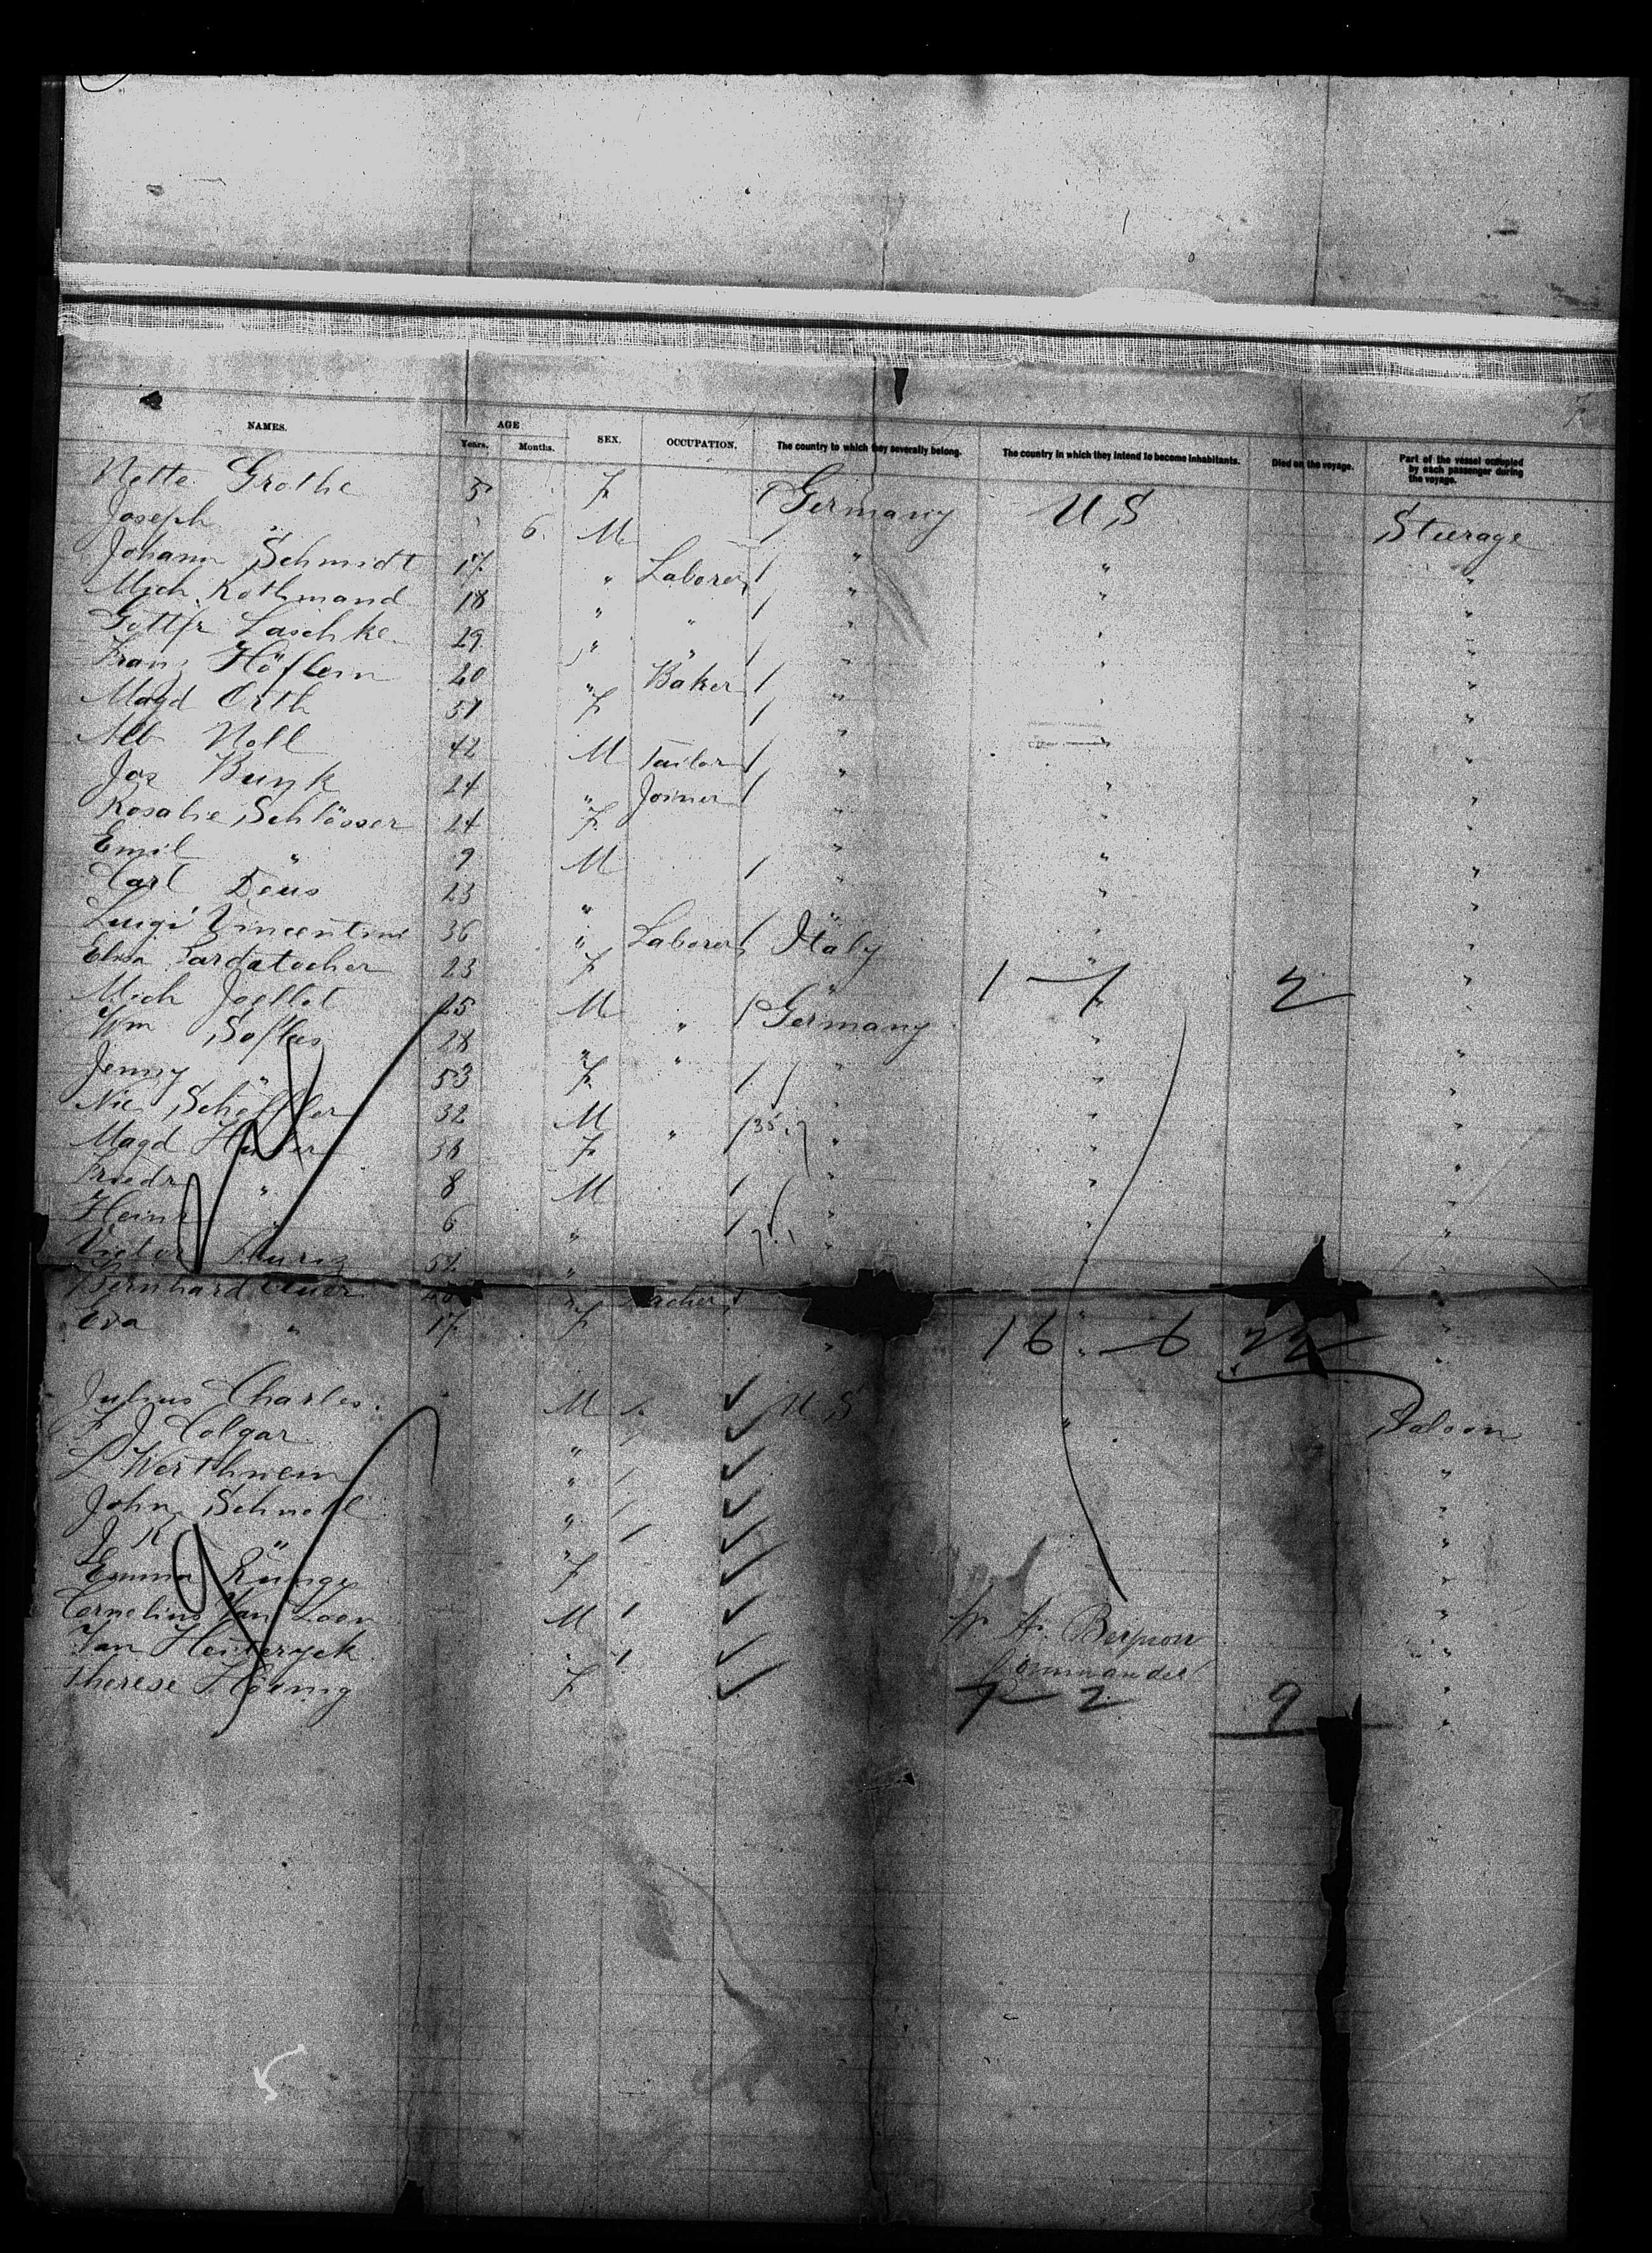 NAMES. AGE Years. Months. SEX. OCCUPATION. The country to which they severally belong. The country in which they intend to become inhabitants. Died on the voyage. Part of the vessel occupied by each passenger during the voyage.
Nette Grothe 5 F Germany U S Steerage
Joseph " 6 M
Johann Schmidt 17 " Laborer " " "
Mich. Rothmand 18 " " " " "
Gottfr Laschke 29 " " " " "
Franz Höflein 20 " Baker " " "
Magd Orth 57 F " "
Alb Noll 42 M Tailor " " "
Jos Bunk 24 " Joiner " " "
Rosalie Schlösser 24 F " "
Emil " 9 M " " "
Carl Deus 23 " " " "
Luigi Vincentini 36 " Laborer Italy " "
Elisa 23 F " " "
1 1 2
Mich 25 M " Germany " "
Wm 28 " " " "
Jenny " 53 F " " "
Nic Scheffler 32 M " " " "
Magd Huber 38 F " " "
Friedr " 8 M " " "
Heinr " 6 " " " "
Victor 52 "
Bernhard Auer "
Eva " 17 F " "
16 6 22
Julius Charles M U S " Saloon
F J Colgar " "
L Werthheim " "
John Schnell " "
J R " " "
Emma Runge F "
Cornelius Van Loon M "
Van " "
Therese Hoenig F "
Commander
7 2 9